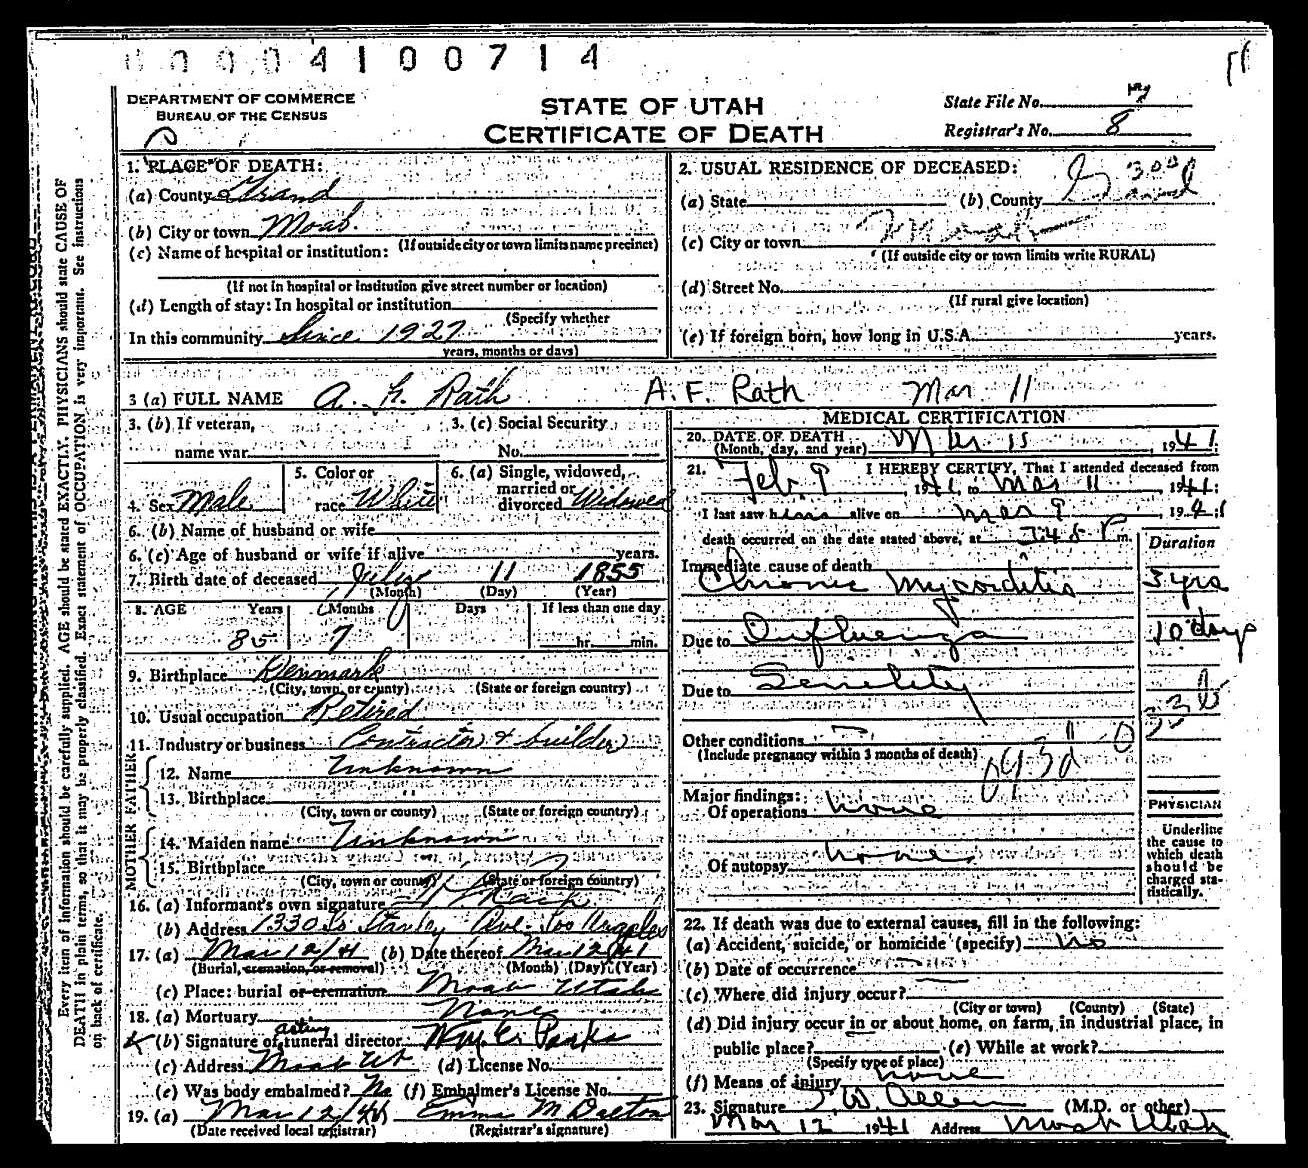 0000410 0714
DEPARTMENT OF COMMERCE
BUREAU OF THE CENSUS
STATE OF UTAH
CERTIFICATE OF DEATH
State File No.
Registrar's No. 8
1. PLACE OF DEATH:
(a) County Grand
(b) City or town Moab.
(If outside city or town limits name precinct)
(c) Name of hospital or institution:
(If not in hospital or institution give street number or location)
(d) Length of stay: In hospital or institution
(Specify whether
In this community Since 1927
years, months or days)
2. USUAL RESIDENCE OF DECEASED:
(a) State (b) County Grand
(c) City or town Moab
(If outside city or town limits write RURAL)
(d) Street No.
(If rural give location)
(e) If foreign born, how long in U.S.A. years.
3 (a) FULL NAME A. F. Rath A. F. Rath Mar 11
3. (b) If veteran,
name war
3. (c) Social Security
No.
4. Sex Male
5. Color or
race White
6. (a) Single, widowed,
married or
divorced Widowed
6. (b) Name of husband or wife
6. (c) Age of husband or wife if alive years.
7. Birth date of deceased July 11 1855
(Month) (Day) (Year)
8. AGE Years Months Days If less than one day
85 7 hr. min.
9. Birthplace Denmark
(City, town, or county) (State or foreign country)
10. Usual occupation Retired
11. Industry or business Contractor & builder
FATHER
12. Name Unknown
13. Birthplace "
(City, town or county) (State or foreign country)
MOTHER
14. Maiden name Unknown
15. Birthplace
(City, town or county) (State or foreign country)
16. (a) Informant's own signature
(b) Address 1330 So Stanley Ave. Los Angeles
17. (a) Mar 12/41 (b) Date thereof Mar 12/41
(Burial, cremation, or removal) (Month) (Day) (Year)
(c) Place: burial or cremation Moab Utah
18. (a) Mortuary None
acting
(b) Signature of funeral director
(c) Address Moab Ut (d) License No.
(e) Was body embalmed? No (f) Embalmer's License No.
19. (a) Mar 12/41 Emma M Dalton
(Date received local registrar) (Registrar's signature)
MEDICAL CERTIFICATION
20. DATE OF DEATH Mar 11, 1941
(Month, day, and year)
21. I HEREBY CERTIFY, That I attended deceased from
Feb. 9, 1941, to Mar 11, 1941;
I last saw him alive on Mar 9, 1941;
death occurred on the date stated above, at 7:45 P m.
Duration
Immediate cause of death
Chronic Myocarditis 3 yrs
Due to Influenza 10 days
Due to Senility
Other conditions
(Include pregnancy within 3 months of death)
Major findings:
Of operations none
Of autopsy none
PHYSICIAN
Underline
the cause to
which death
should be
charged sta-
tistically.
22. If death was due to external causes, fill in the following:
(a) Accident, suicide, or homicide (specify) no
(b) Date of occurrence
(c) Where did injury occur?
(City or town) (County) (State)
(d) Did injury occur in or about home, on farm, in industrial place, in
public place? (e) While at work?
(Specify type of place)
(f) Means of injury none
23. Signature I. W. Allen (M.D. or other)
Mar 12 1941 Address Moab Utah
Every item of information should be carefully supplied. AGE should be stated EXACTLY. PHYSICIANS should state CAUSE OF
DEATH in plain terms, so that it may be properly classified. Exact statement of OCCUPATION is very important. See instructions
on back of certificate.